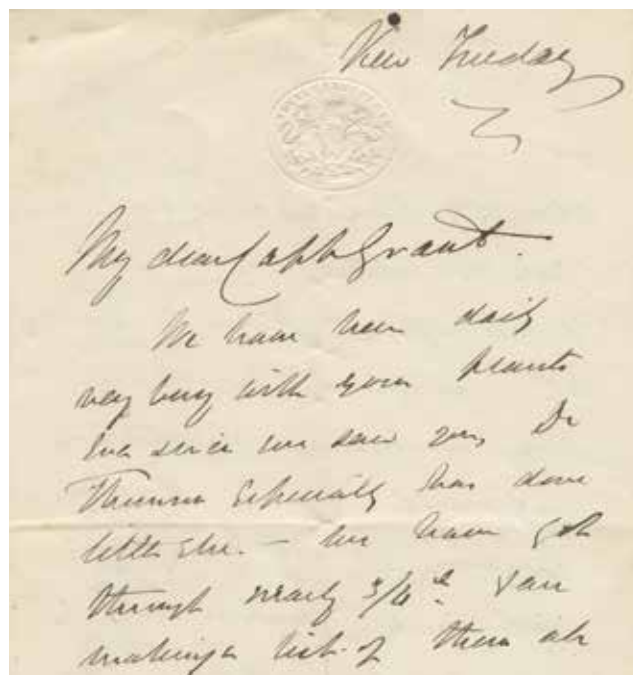 Kew Tuesday
My dear Capt Grant.
We have been daily
very busy with your plants
ever since we saw you, Dr
Thomson especially has done
little else. – we have got
through nearly 3/4 & am
making a list of them as